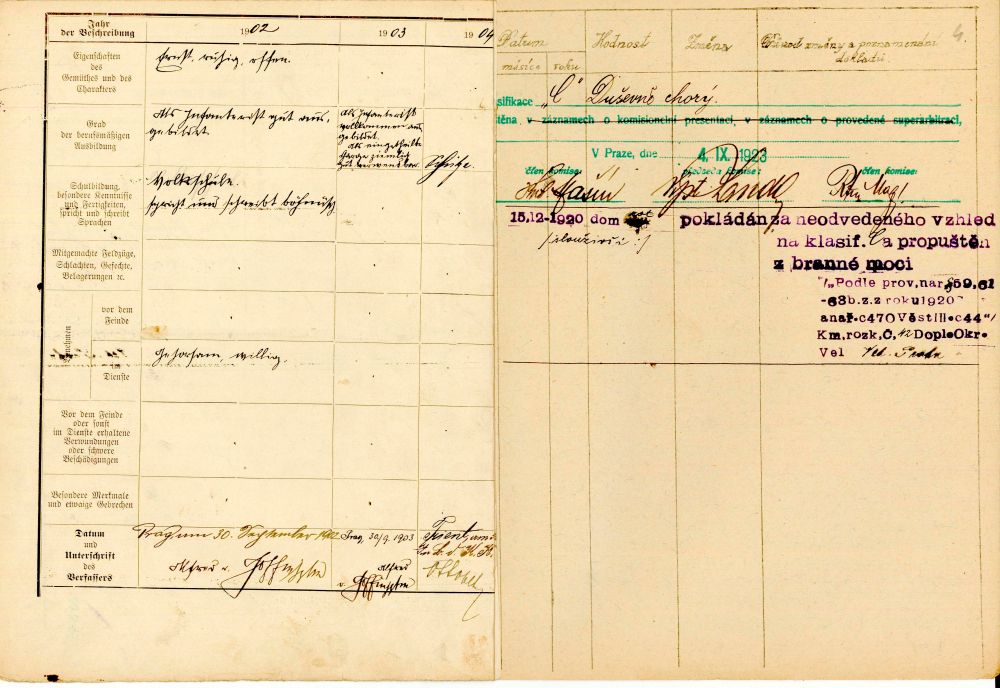 Jahr
der Beschreibung
1902
1903
1904
Eigenschaften
des
Gemüthes und des
Charakters
Ernst, ruhig, offen.
Grad
der berufsmäßigen
Ausbildung
Als Infanterist gut aus-
gebildet.
Als Infanterist
vollkommen aus-
gebildet.
Als eingetheilte
Charge ziemlich
gut verwendbar.
Schulbildung,
besondere Kenntnisse
und Fertigkeiten,
spricht und schreibt
Sprachen
Volksschule.
spricht und schreibt böhmisch
Mitgemachte Feldzüge,
Schlachten, Gefechte,
Belagerungen ꝛc.
Benehmen
vor dem
Feinde
im
Dienste
Gehorsam, willig.
Vor dem Feinde
oder sonst
im Dienste erhaltene
Verwundungen
oder schwere
Beschädigungen
Besondere Merkmale
und etwaige Gebrechen
Datum
und
Unterschrift
des
Verfassers
Prag am 30. September 1902
Alfred v.
Prag, 30/9 1903
Alfred
v.
Trient, am
Datum
měsíce roku
Hodnost
Změna
Důvod změny a poznamenání
dokladů
4.
sifikace „C" Duševně chorý.
těna v záznamech o komisionelní presentaci, v záznamech o provedené superarbitraci,
V Praze, dne 4. IX. 1923
člen komise:
předseda komise:
člen komise:
15.12-1920 dom
pokládán za neodvedeného vzhled
na klasif. C a propuštěn
z branné moci
"/„Podle prov,nar,§59,61
-63b.z.z roku1920
anař.c470Věstili.c44"/
Km,rozk,Č, 42 Dople.Okr.
Vel Vel. Praha